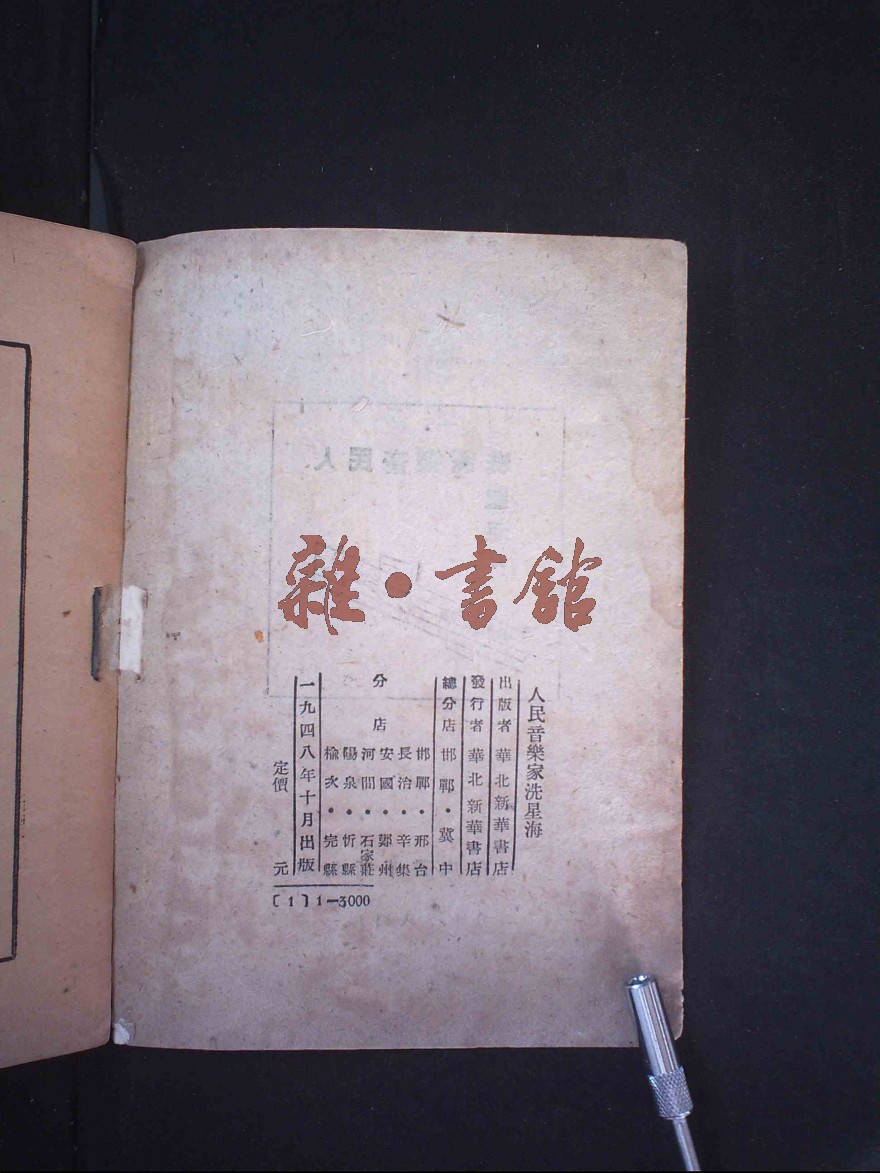 雜·書舘
人民音樂家洗星海
出版者 華北新華書店
發行者 華北新華書店
總分店 邯鄲·冀中
分店
邯鄲·邢台
長治·辛集
安國·鄭州
河間·石家莊
陽泉·忻縣
榆次·完縣
一九四八年十月出版
定價 元
〔1〕1—3000